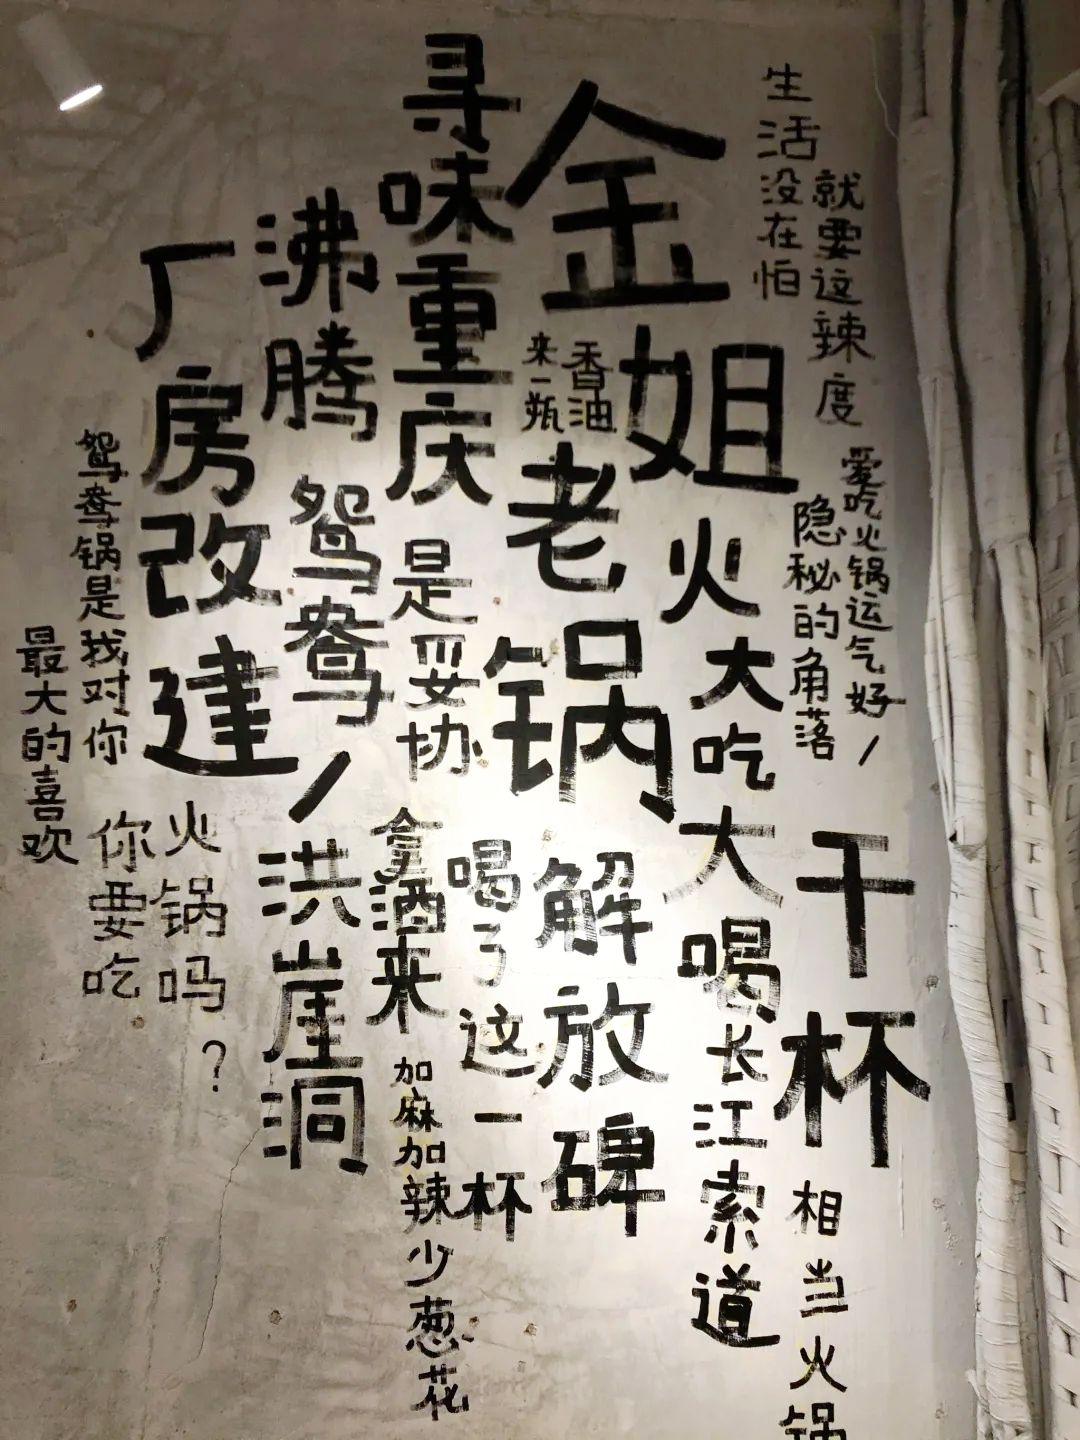 生活没在怕
就要这辣度
爱吃火锅运气好
隐秘的角落
金姐火
大吃
大喝
干杯
长江索道
相当火锅
香油
来一瓶
老锅
解放碑
寻味重庆
是妥协
喝了这一杯
拿酒来
加麻加辣少葱花
沸腾
鸳鸯
洪崖洞
厂房改建
火锅吗?
你要吃
鸳鸯锅是我对你
最大的喜欢